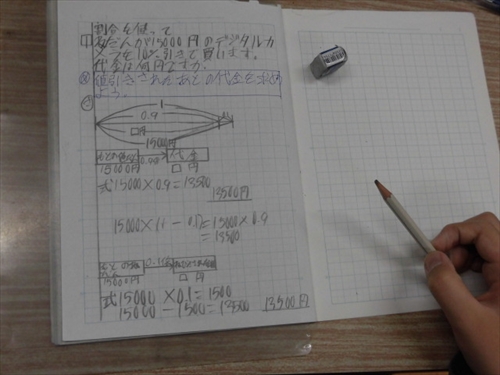 割合を使って
ねだんが15000円のデジタルカ
メラを10%引きで買います。
代金は何円ですか。
値引きされたあとの代金を求め
よう。
1
0.9
0.1
□円
15000円
代金
15000円 □円
式15000×0.9=13500
13500円
=15000×0.9
=13500
15000円 □円
式15000×0.1=1500
15000-1500=13500 13500円